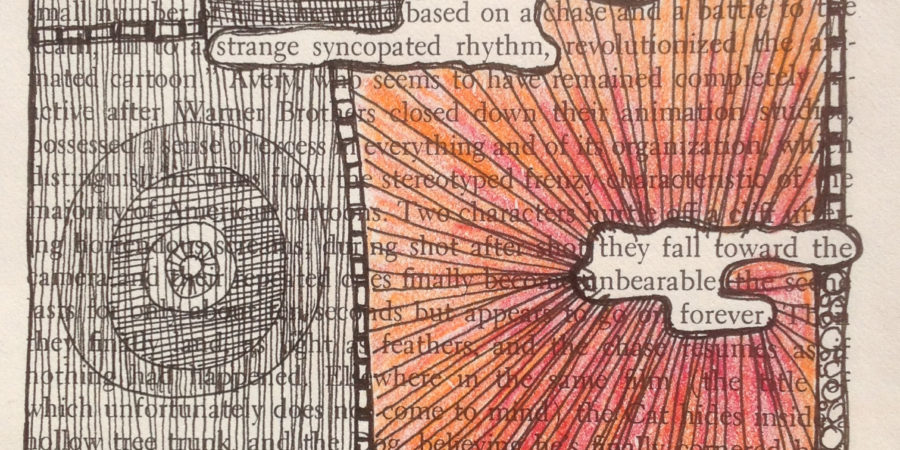 small number based on a chase and a battle to the
death all to a strange syncopated rhythm, revolutionized the ani-
mated cartoon." Avery, who seems to have remained completely
active after Warner Brothers closed down their animation studio,
possessed a sense of excess in everything and of its organization, which
distinguish his films from the stereotyped frenzy characteristic of the
majority of American cartoons. Two characters hurtle off a cliff utter-
ing horrendous screams, during shot after shot they fall toward the
camera and their repeated cries finally become unbearable; the scene
lasts for only about ten seconds but appears to go on forever. Then
they as light as feathers, and the chase resumes as if
nothing had happened. Elsewhere in the same film (the title of
which unfortunately does not come to mind), the Cat hides inside
hollow tree trunk, and the dog, believing he's finally cornered